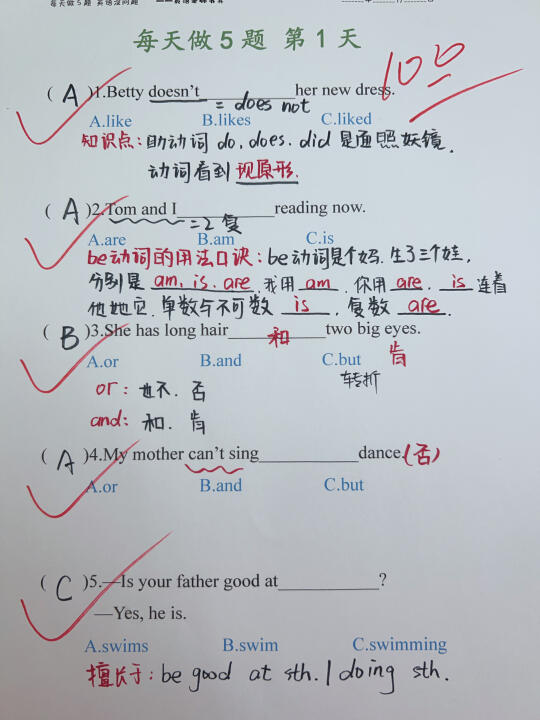 每天做5题 英语没问题
每天做5题 第1天
100
(A)1.Betty doesn't__________her new dress.
= does not
A.like B.likes C.liked
知识点：助动词 do, does. did 是面照妖镜.
动词看到现原形.
(A)2.Tom and I__________reading now.
=2 复
A.are B.am C.is
be动词的用法口诀：be动词是个妈.生了三个娃,
分别是 am, is. are, 我用 am . 你用 are. is 连着
他她它. 单数与不可数 is , 复数 are.
(B)3.She has long hair__________two big eyes.
和
A.or B.and C.but 肯
转折
or: 也不. 否
and: 和. 肯
(A)4.My mother can't sing__________dance.(否)
A.or B.and C.but
(C)5.—Is your father good at__________?
—Yes, he is.
A.swims B.swim C.swimming
擅长于: be good at sth. / doing sth.